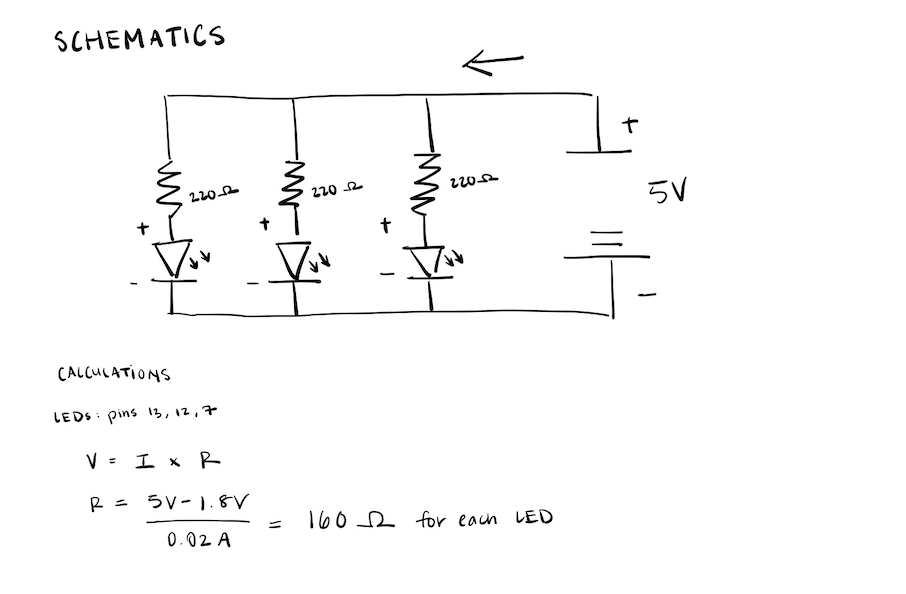 SCHEMATICS
+
5V
220Ω 220Ω 220Ω
+ + +
- - - -
CALCULATIONS
LEDs: pins 13, 12, 7
V = I x R
R = 5V-1.8V / 0.02A = 160 Ω for each LED